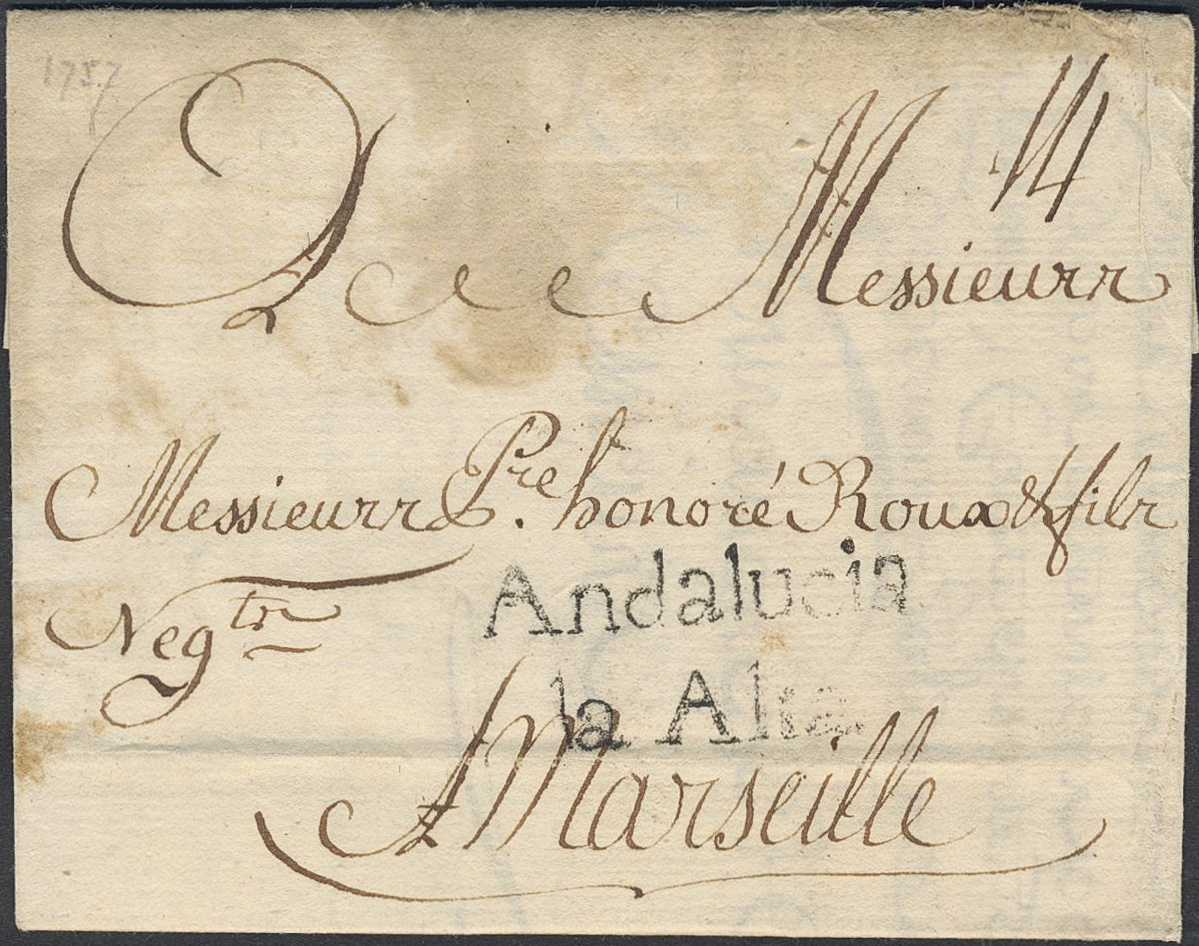 1757
14
A Messieurs
Messieurs Pre. honoré Roux & fils
Negts
Andalucia
la Alta
A Marseille